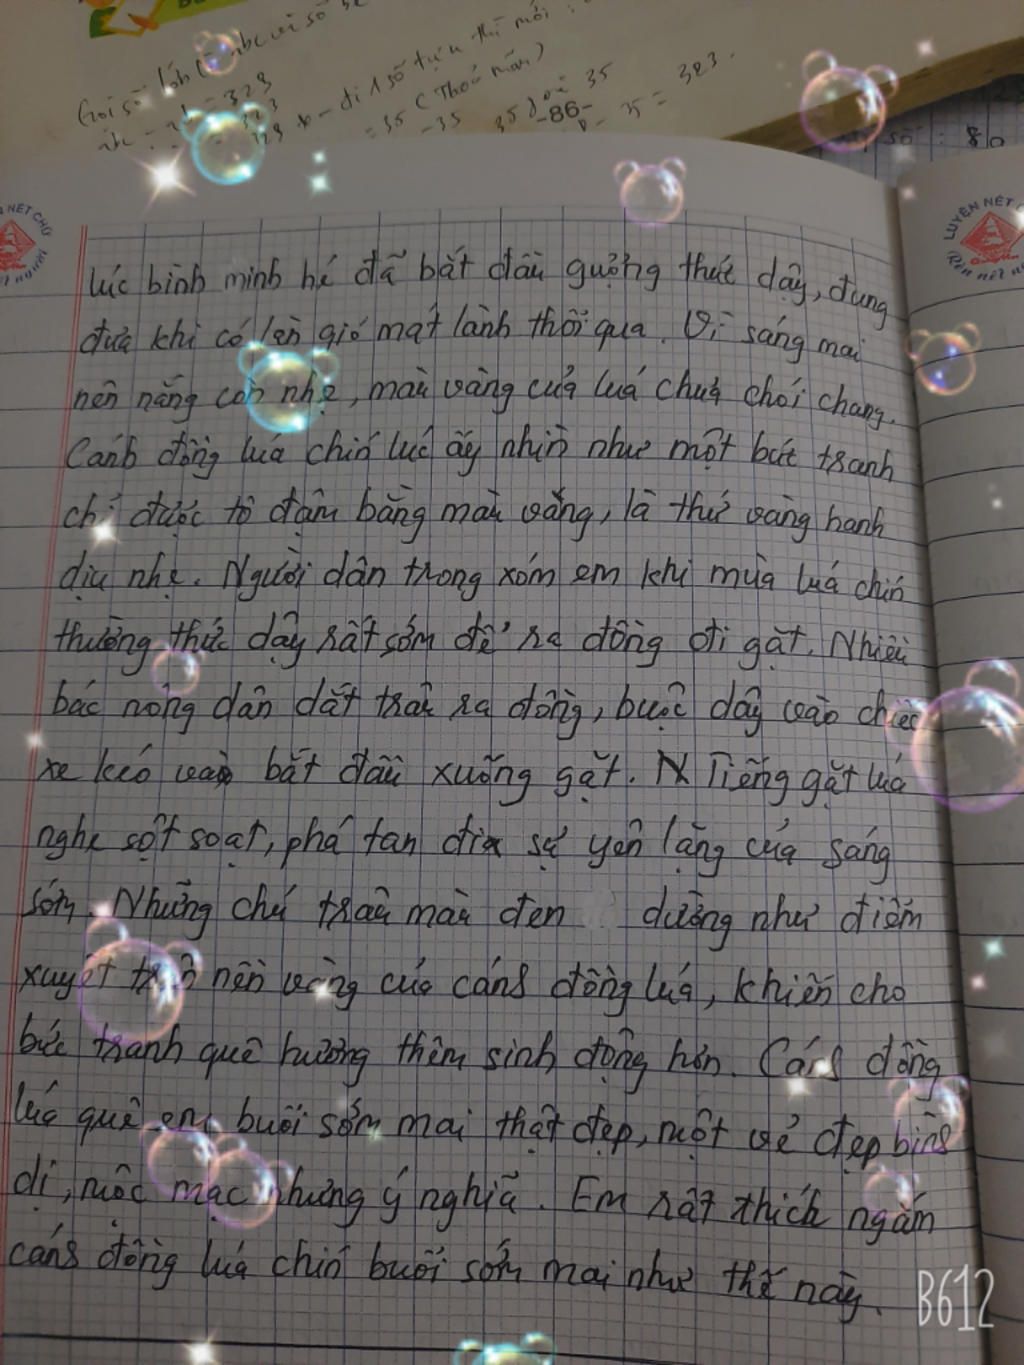 Gọi số
= 323
323
= 35 (Thoả mãn)
-35
35
-86-
35 = 323.
số : 80
NÉT CHỮ
nết người
LUYỆN NÉT
Rèn nết
lúc bình minh hé đã bắt đầu gượng thức dậy, đung
đưa khi có làn gió mát lành thổi qua. Vì sáng mai
nên nắng còn nhẹ, màu vàng của luá chưa chói chang.
Cánh đồng luá chín lúc ấy nhìn như một bức tranh
chỉ được tô đậm bằng màu vàng, là thứ vàng hanh
dịu nhẹ. Người dân trong xóm em khi mùa luá chín
thường thức dậy rất sớm để ra đồng đi gặt. Nhiều
bác nông dân dắt trâu ra đồng, buộc dây vào chiếc
xe kéo và bắt đầu xuống gặt. Tiếng gặt luá
nghe sột soạt, phá tan đi sự yên lặng của sáng
sớm. Những chú trâu màu đen dường như điểm
xuyết trên nền vàng của cánh đồng luá, khiến cho
bức tranh quê hương thêm sinh động hơn. Cánh đồng
luá quê em buổi sớm mai thật đẹp, một vẻ đẹp bình
dị, mộc mạc nhưng ý nghiã. Em rất thích ngắm
cánh đồng luá chín buổi sớm mai như thế này.
B612